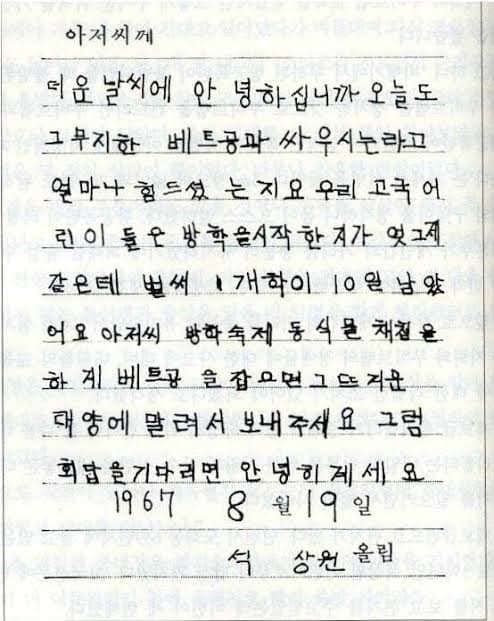 아저씨께
더운 날씨에 안녕하십니까 오늘도
그 무지한 베트공과 싸우시는라고
얼마나 힘드셨는지요 우리 고국 어
린이들은 방학을 시작한지가 엊그제
같은데 벌써 개학이 10일 남았
어요 아저씨 방학숙제 동식물 채집을
하게 베트공을 잡으면 그 뜨거운
태양에 말려서 보내주세요 그럼
회답을 기다리며 안녕히 계세요
1967 8월 19일
석 상원 올림